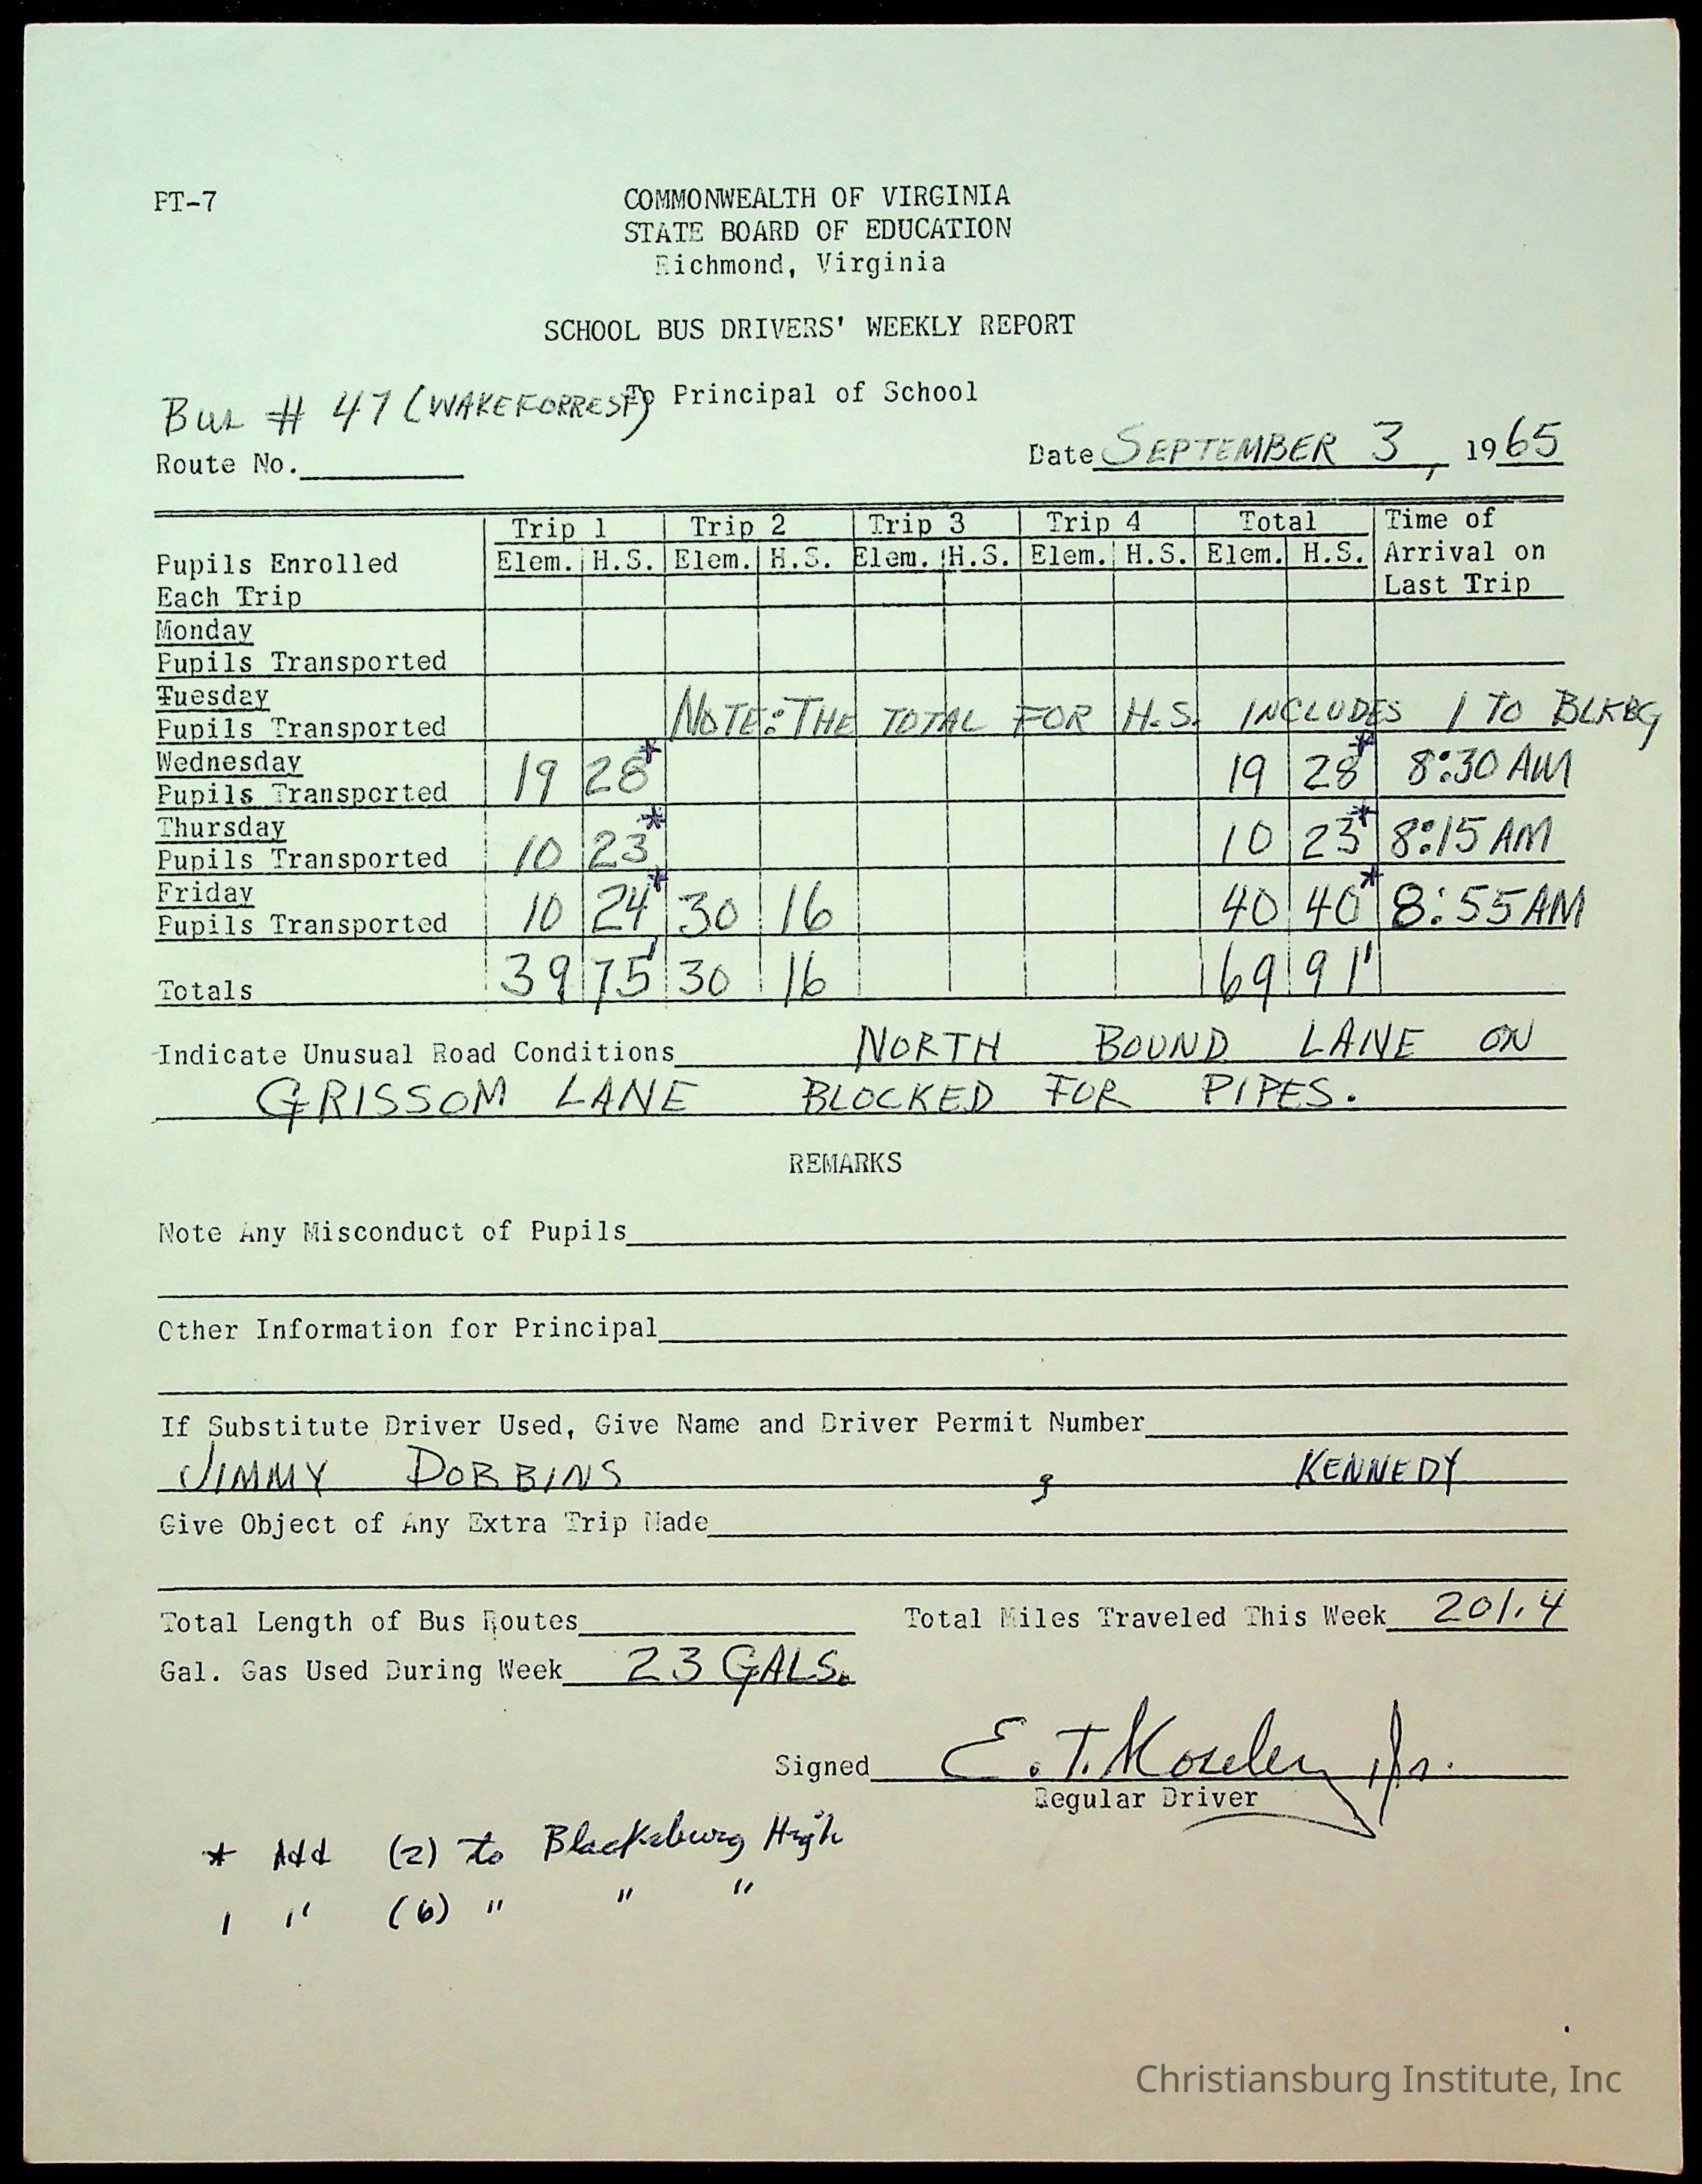 PT-7
COMMONWEALTH OF VIRGINIA
STATE BOARD OF EDUCATION
Richmond, Virginia
SCHOOL BUS DRIVERS' WEEKLY REPORT
To Principal of School
Bus # 47 (WAKEFORREST)
Route No.
Date SEPTEMBER 3, 1965
Trip 1 Trip 2 Trip 3 Trip 4 Total Time of
Pupils Enrolled Elem. H.S. Elem. H.S. Elem. H.S. Elem. H.S. Elem. H.S. Arrival on
Each Trip Last Trip
Monday
Pupils Transported
Tuesday
Pupils Transported NOTE: THE TOTAL FOR H.S. INCLUDES 1 TO BLKBG
Wednesday
Pupils Transported 19 28* 19 28* 8:30 AM
Thursday
Pupils Transported 10 23* 10 23* 8:15 AM
Friday
Pupils Transported 10 24* 30 16 40 40* 8:55 AM
Totals 39 75' 30 16 69 91'
Indicate Unusual Road Conditions NORTH BOUND LANE ON
GRISSOM LANE BLOCKED FOR PIPES.
REMARKS
Note Any Misconduct of Pupils
Other Information for Principal
If Substitute Driver Used, Give Name and Driver Permit Number
JIMMY DOBBINS , KENNEDY
Give Object of Any Extra Trip Made
Total Length of Bus Routes Total Miles Traveled This Week 201.4
Gal. Gas Used During Week 23 GALS.
Signed E. T. Moseley, Jr.
Regular Driver
* Add (2) to Blacksburg High
' " (6) " " "
Christiansburg Institute, Inc